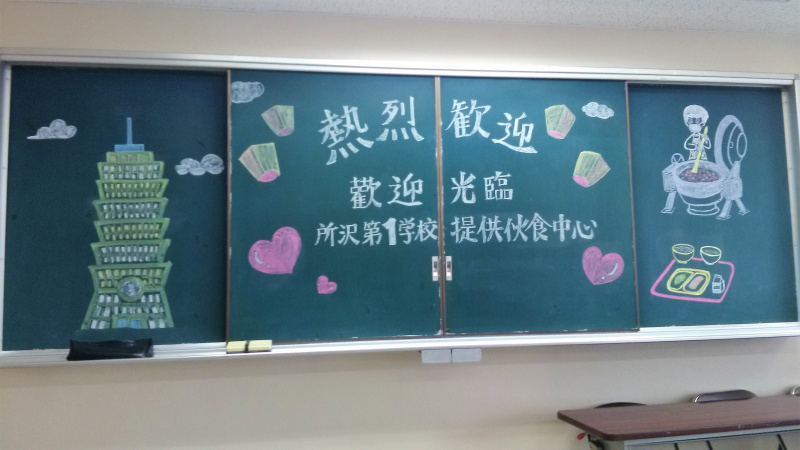 熱烈歓迎
歡迎光臨
所沢第1学校提供伙食中心